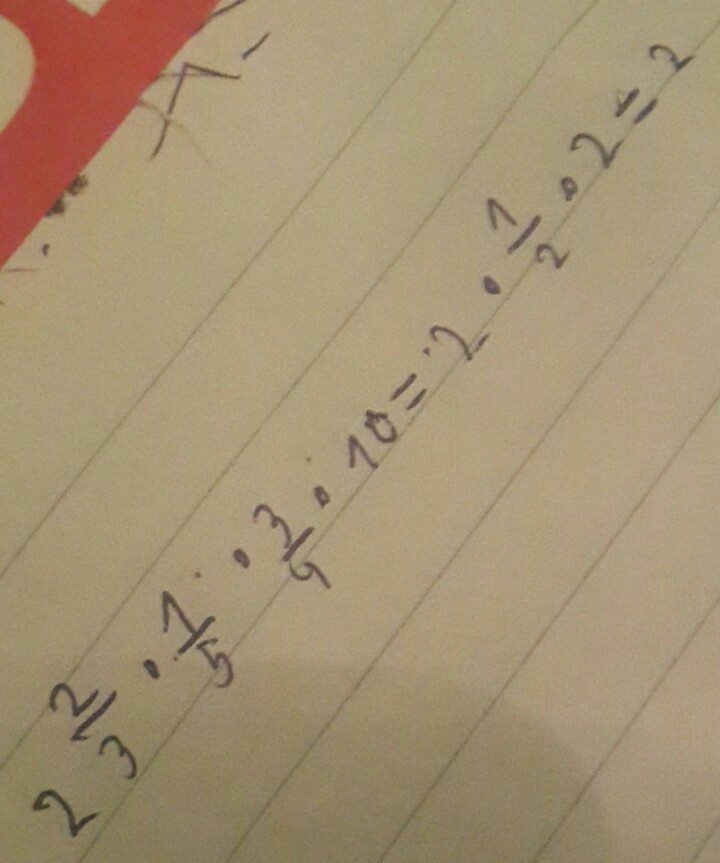 2 2/3 · 1/5 · 3/4 · 10 = 2 · 1/2 · 2 = 2